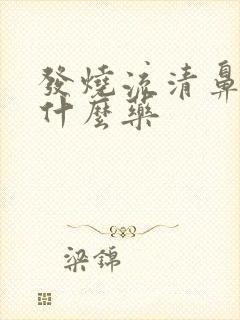 發燒流清鼻
什麼藥
梁錦